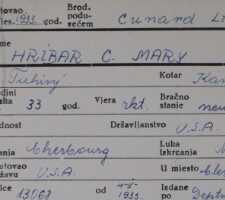 tovao
jes. 1933 god.
Brod.
podu-
sećem
Cunard Li
me
HRIBAR C. MARY
Tuhinj
Kotar Kam
dini
33 god.
Vjera rkt.
Bračno
stanje neu
dnost
Državljanstvo U.S.A.
Cherbourg
Luka
iskrcanja
utovao
U.S.A.
U mjesto Cle
ice 13068
od
1933.
Izdane
po Deptm